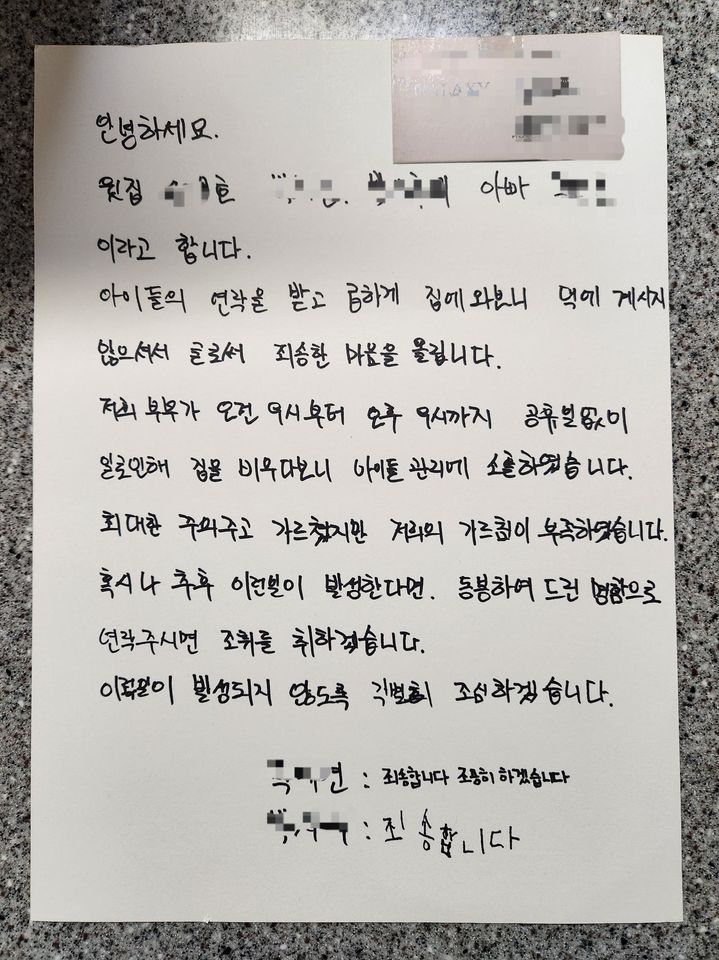 안녕하세요.
윗집 호 아빠
이라고 합니다.
아이들의 연락을 받고 급하게 집에 와보니 댁에 계시지
않으셔서 글로써 죄송한 마음을 올립니다.
저희 부부가 오전 9시부터 오후 9시까지 공휴일없이
일로인해 집을 비우다보니 아이들 관리에 소홀하였습니다.
최대한 주의주고 가르쳤지만 저희의 가르침이 부족하였습니다.
혹시나 추후 이런일이 발생한다면. 동봉하여 드린 명함으로
연락주시면 조취를 취하겠습니다.
이런일이 발생되지 않도록 각별히 조심하겠습니다.
연 : 죄송합니다 조용히 하겠습니다
: 죄송합니다